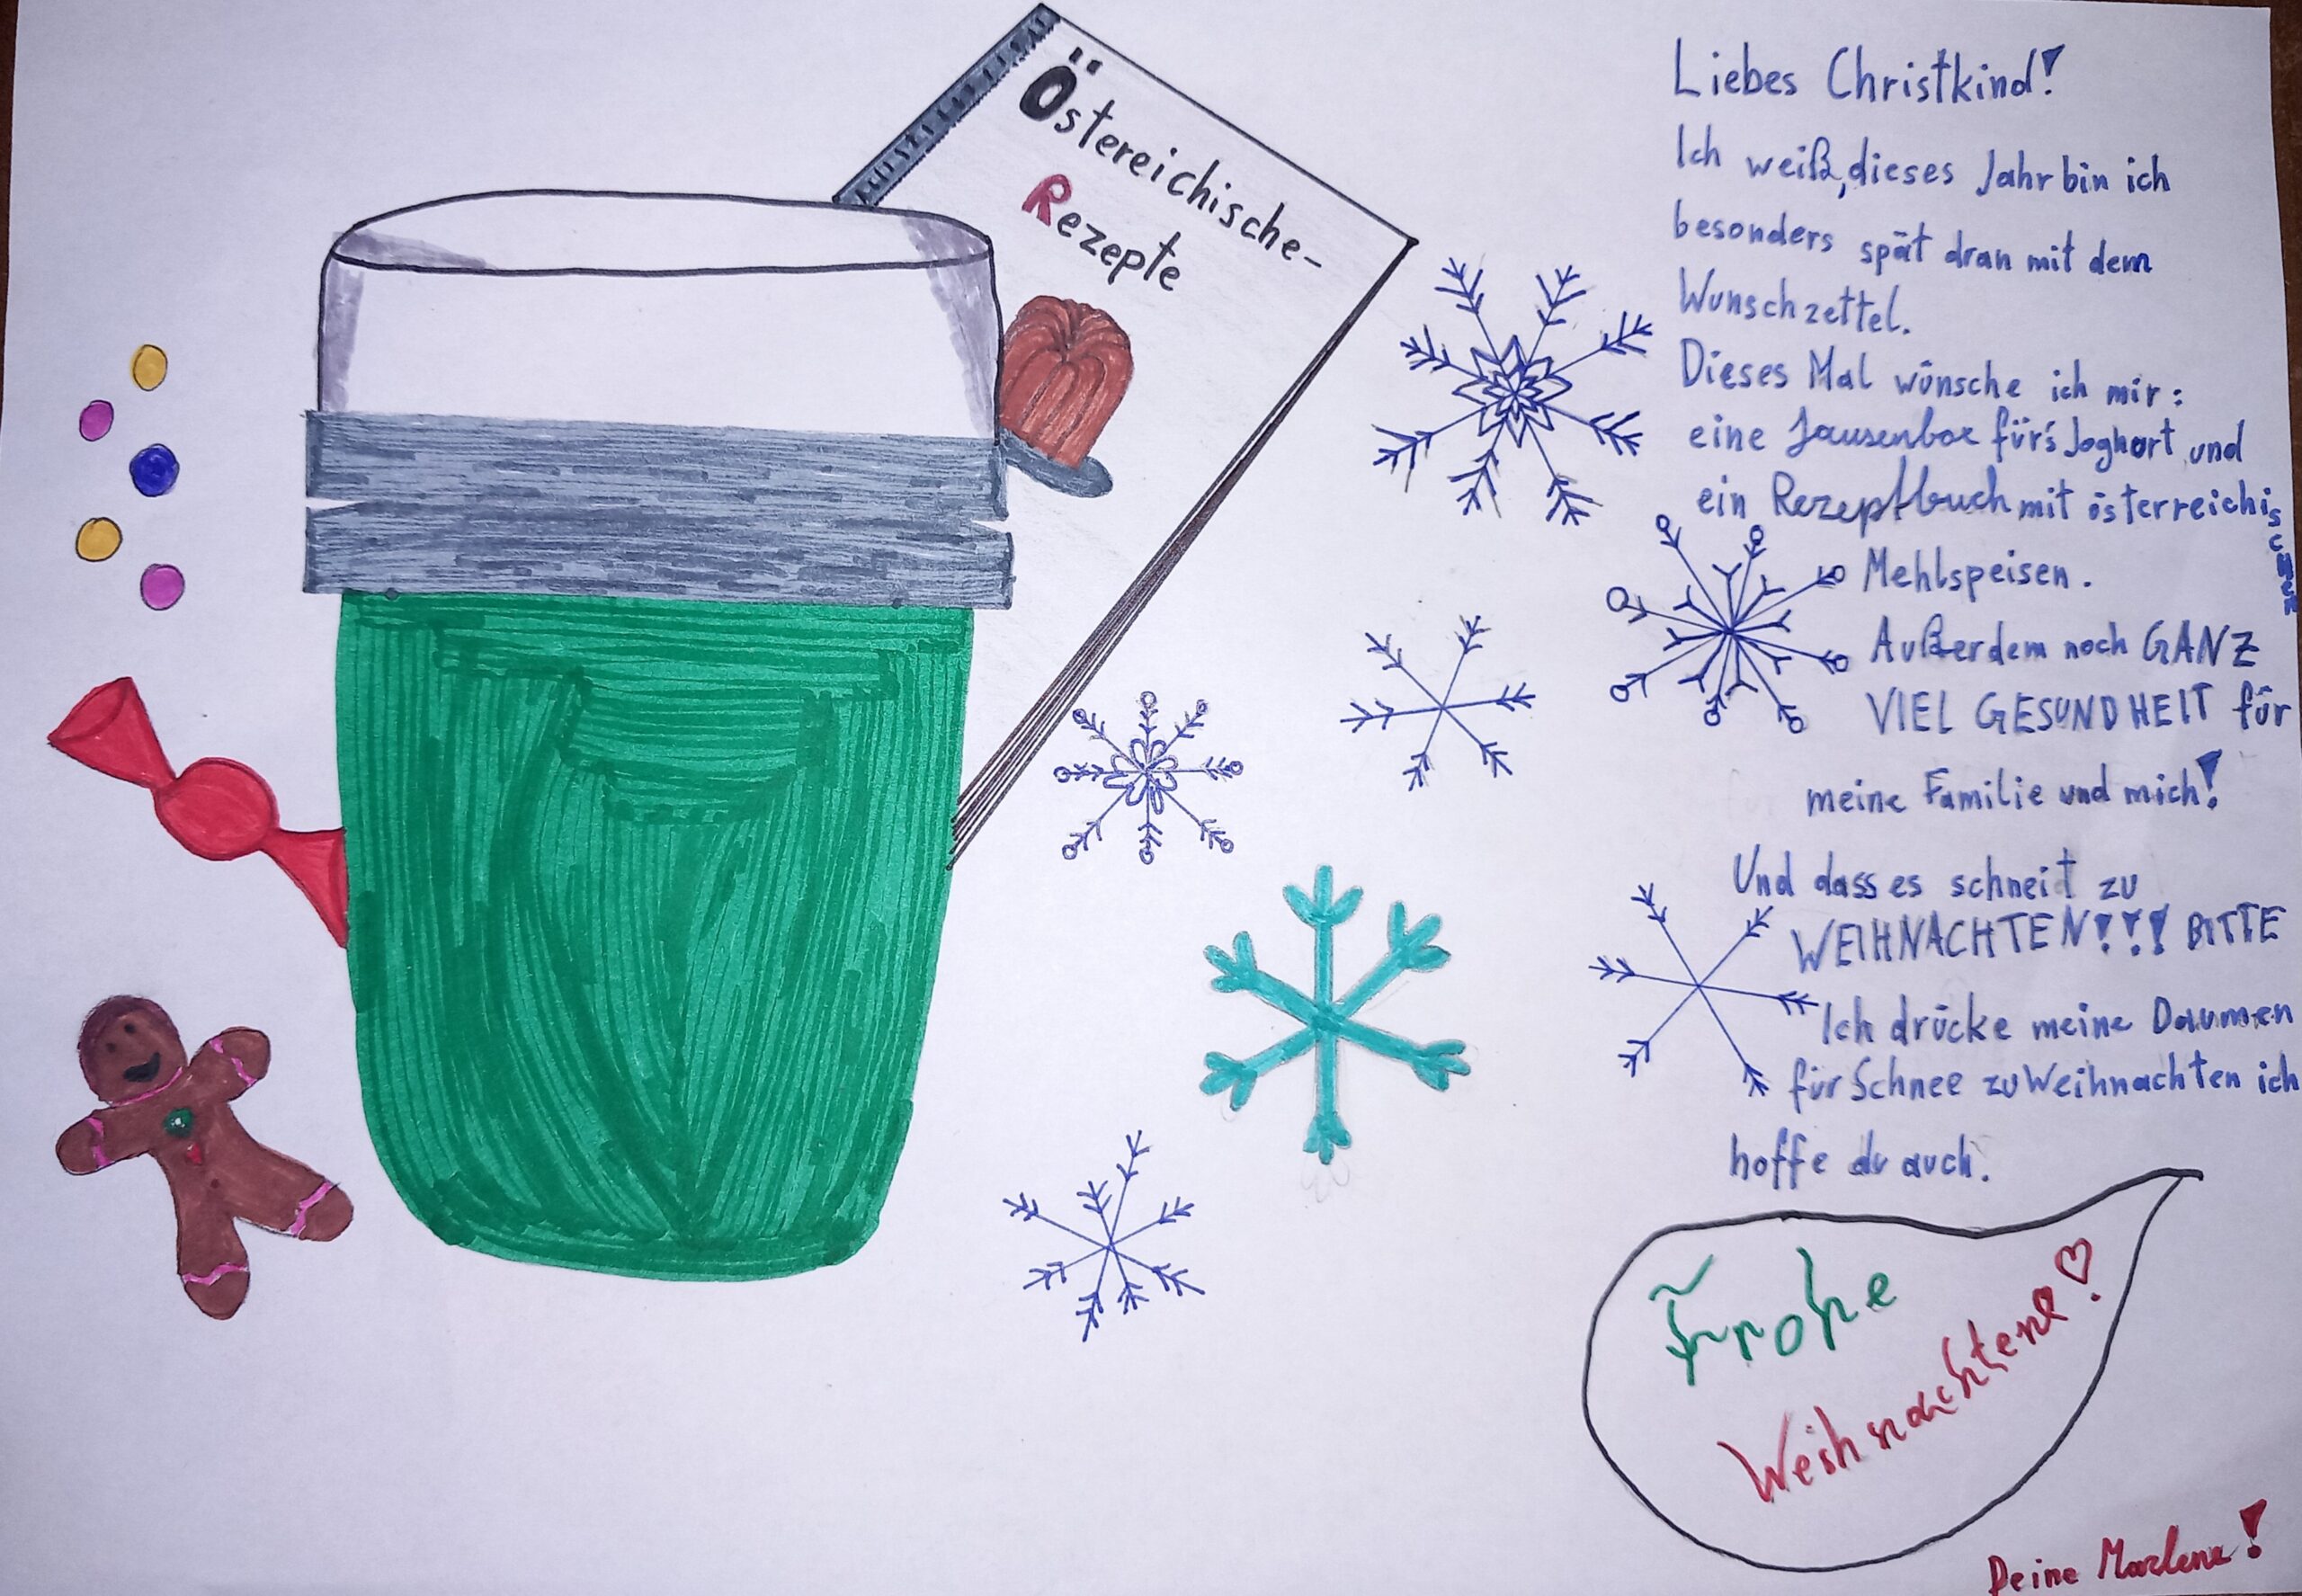 Östereichische-
Rezepte
Liebes Christkind!
Ich weiß, dieses Jahr bin ich
besonders spät dran mit dem
Wunschzettel.
Dieses Mal wünsche ich mir:
eine Jausenbox für's Joghurt und
ein Rezeptbuch mit österreichischen
Mehlspeisen.
Außerdem noch GANZ
VIEL GESUNDHEIT für
meine Familie und mich!
Und dass es schneit zu
WEIHNACHTEN!!! BITTE
Ich drücke meine Daumen
für Schnee zu Weihnachten ich
hoffe du auch.
Frohe
Weihnachten!
Deine Marlene!